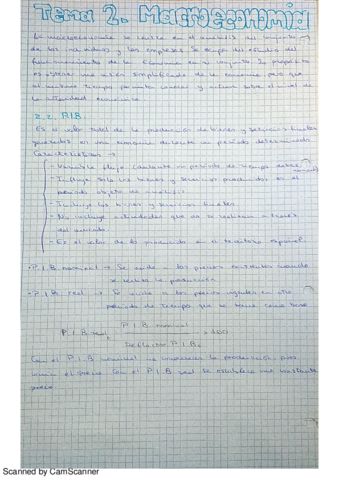 Tema 2. Macroeconomía
La macroeconomía se centra en el análisis del conjunto
de los individuos y las empresas. Se ocupa del estudio del
funcionamiento de la economía en su conjunto. Su propósito
es obtener una visión simplificada de la economía, pero que
al mismo tiempo permita conocer y actuar sobre el nivel de
la actividad económica.
2.2. P.I.B.
Es el valor total de la producción de bienes y servicios finales
generados en una economía durante un periodo determinado.
Características →
- Variable flujo (durante un periodo de tiempo
- Incluye solo los bienes y servicios producidos en el
periodo objeto de análisis.
- Incluye los bienes y servicios finales
- No incluye actividades que no se realizan a través
del mercado.
- Es el valor de lo producido en el territorio español.
• P.I.B nominal → Se mide a los precios existentes cuando
se realiza la producción.
• P.I.B real → Se mide a los precios vigentes en otro
periodo de tiempo que se toma como base
P.I.B real = P.I.B nominal / Deflactor P.I.B. x 100
Con el P.I.B nominal no conocemos la producción, pues
el precio. Con el P.I.B real se establece una constante
precio
Scanned by CamScanner